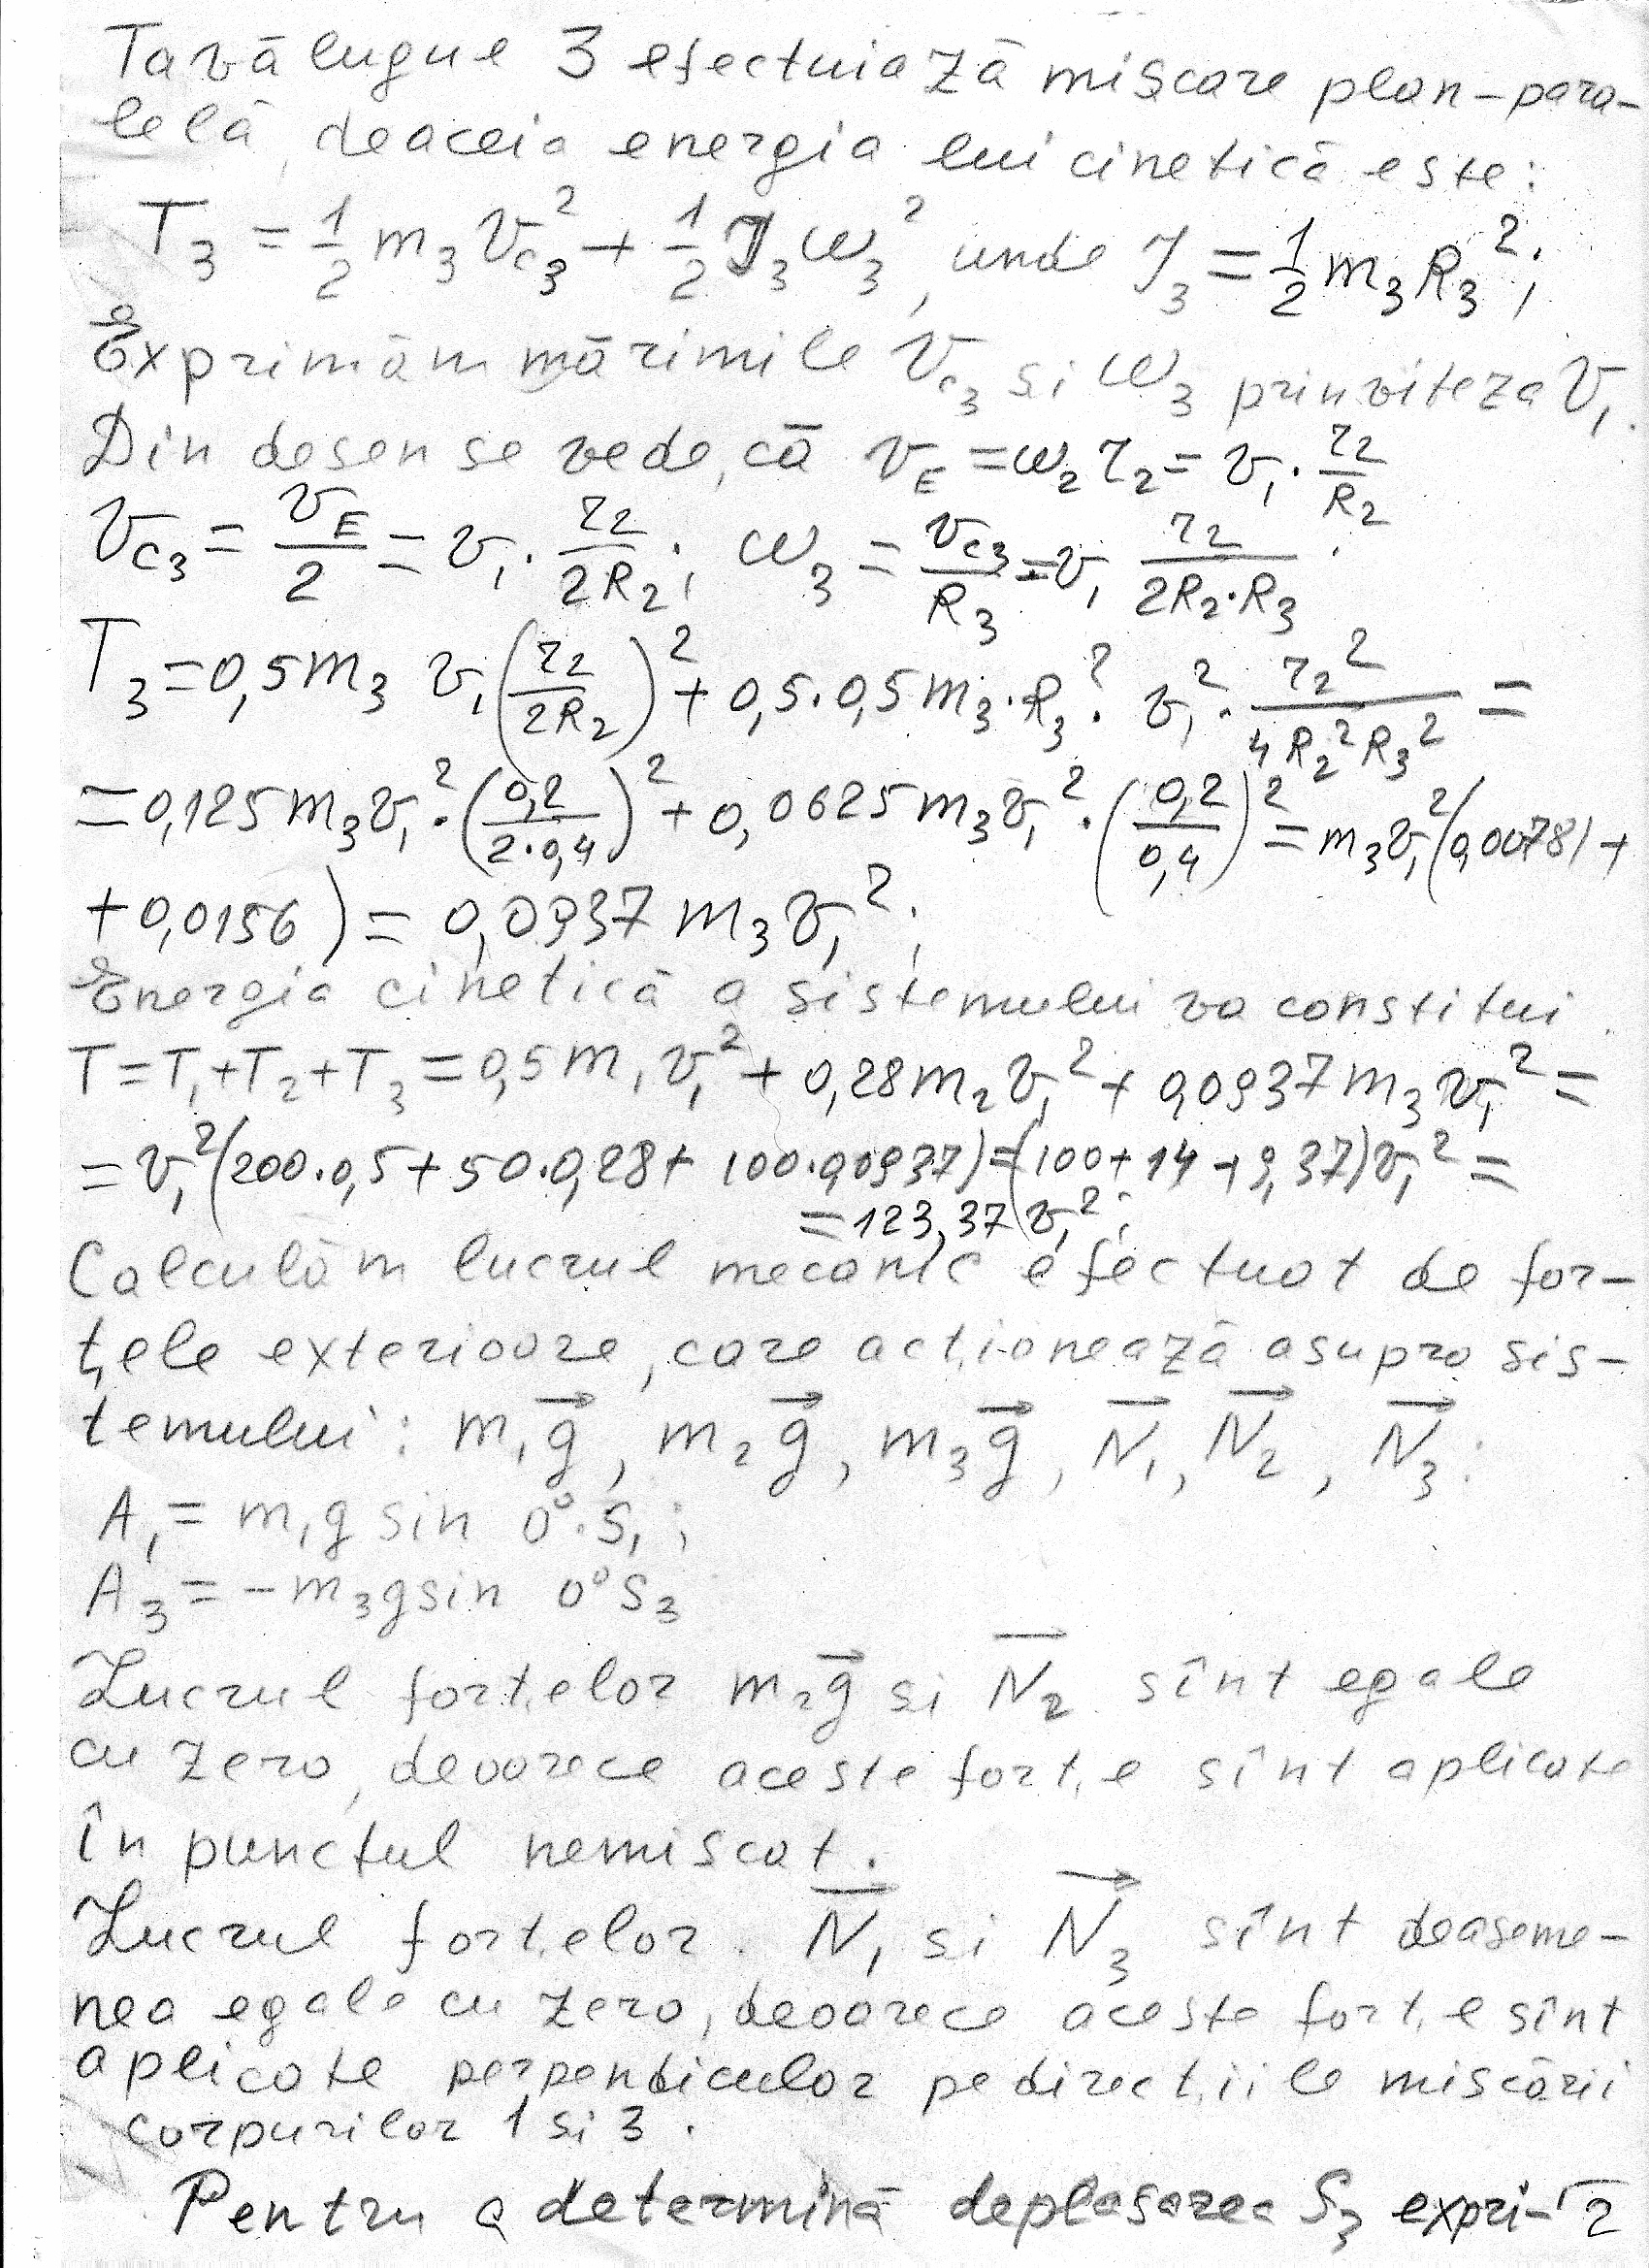 Tavălugul 3 efectuiază mișcare plan-para-
lelă, deaceia energia lui cinetică este:
T₃ = 1/2 m₃ v_c₃² + 1/2 J₃ ω₃², unde J₃ = 1/2 m₃ R₃²;
Exprimăm mărimile v_c₃ și ω₃ prin viteza v₁.
Din desen se vede, că v_E = ω₂ r₂ = v₁ · r₂/R₂
v_c₃ = v_E/2 = v₁ · r₂/2R₂; ω₃ = v_c₃/R₃ = v₁ r₂/2R₂·R₃.
T₃ = 0,5 m₃ v₁ (r₂/2R₂)² + 0,5·0,5 m₃·R₃²· v₁² · r₂²/4R₂²R₃² =
= 0,125 m₃ v₁² · (0,2/2·0,4)² + 0,0625 m₃ v₁² · (0,2/0,4)² = m₃ v₁² (0,00781 +
+ 0,0156) = 0,0937 m₃ v₁²;
Energia cinetică a sistemului va constitui.
T = T₁ + T₂ + T₃ = 0,5 m₁ v₁² + 0,28 m₂ v₁² + 0,0937 m₃ v₁² =
= v₁² (200·0,5 + 50·0,28 + 100·0,0937) = (100 + 14 + 9,37) v₁² =
= 123,37 v₁²;
Calculăm lucrul mecanic efectuat de for-
țele exterioare, care acționează asupra sis-
temului: m₁g⃗, m₂g⃗, m₃g⃗, N⃗₁, N⃗₂, N⃗₃.
A₁ = m₁g sin 0°·S₁;
A₃ = -m₃g sin 0° S₃
Lucrul forțelor m₂g⃗ și N̅₂ sînt egale
cu zero, deoarece aceste forțe sînt aplicate
în punctul nemișcat.
Lucrul forțelor N̅₁ și N⃗₃ sînt deaseme-
nea egale cu zero, deoarece aceste forțe sînt
aplicate perpendicular pe direcțiile mișcării
corpurilor 1 și 3.
Pentru a determină deplasarea S₃ expri- 2